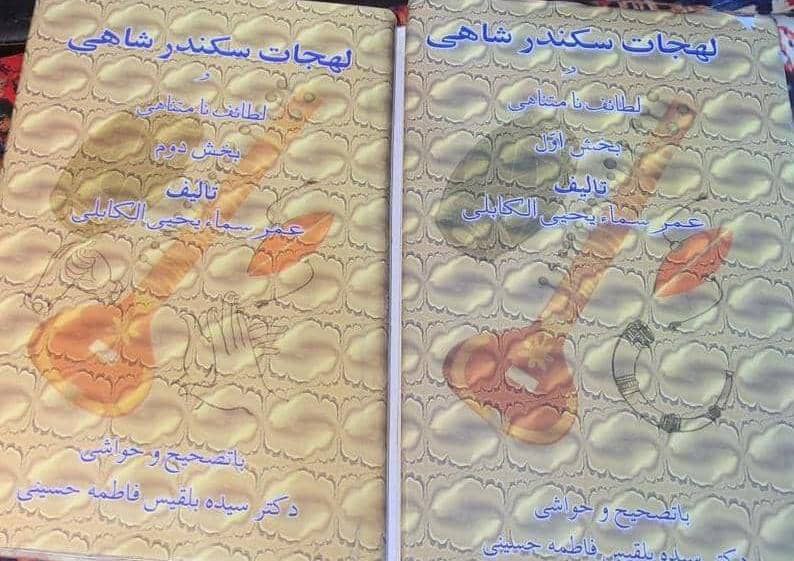 لهجات سكندر شاهی
و
لطائف نا متناهی
بخش اوّل
تالیف
عمر سماء یحیی الکابلی
با تصحیح و حواشی
دکتر سیده بلقیس فاطمه حسینی
لهجات سكندر شاهی
و
لطائف نا متناهی
بخش دوم
تالیف
عمر سماء یحیی الکابلی
با تصحیح و حواشی
دکتر سیده بلقیس فاطمه حسینی